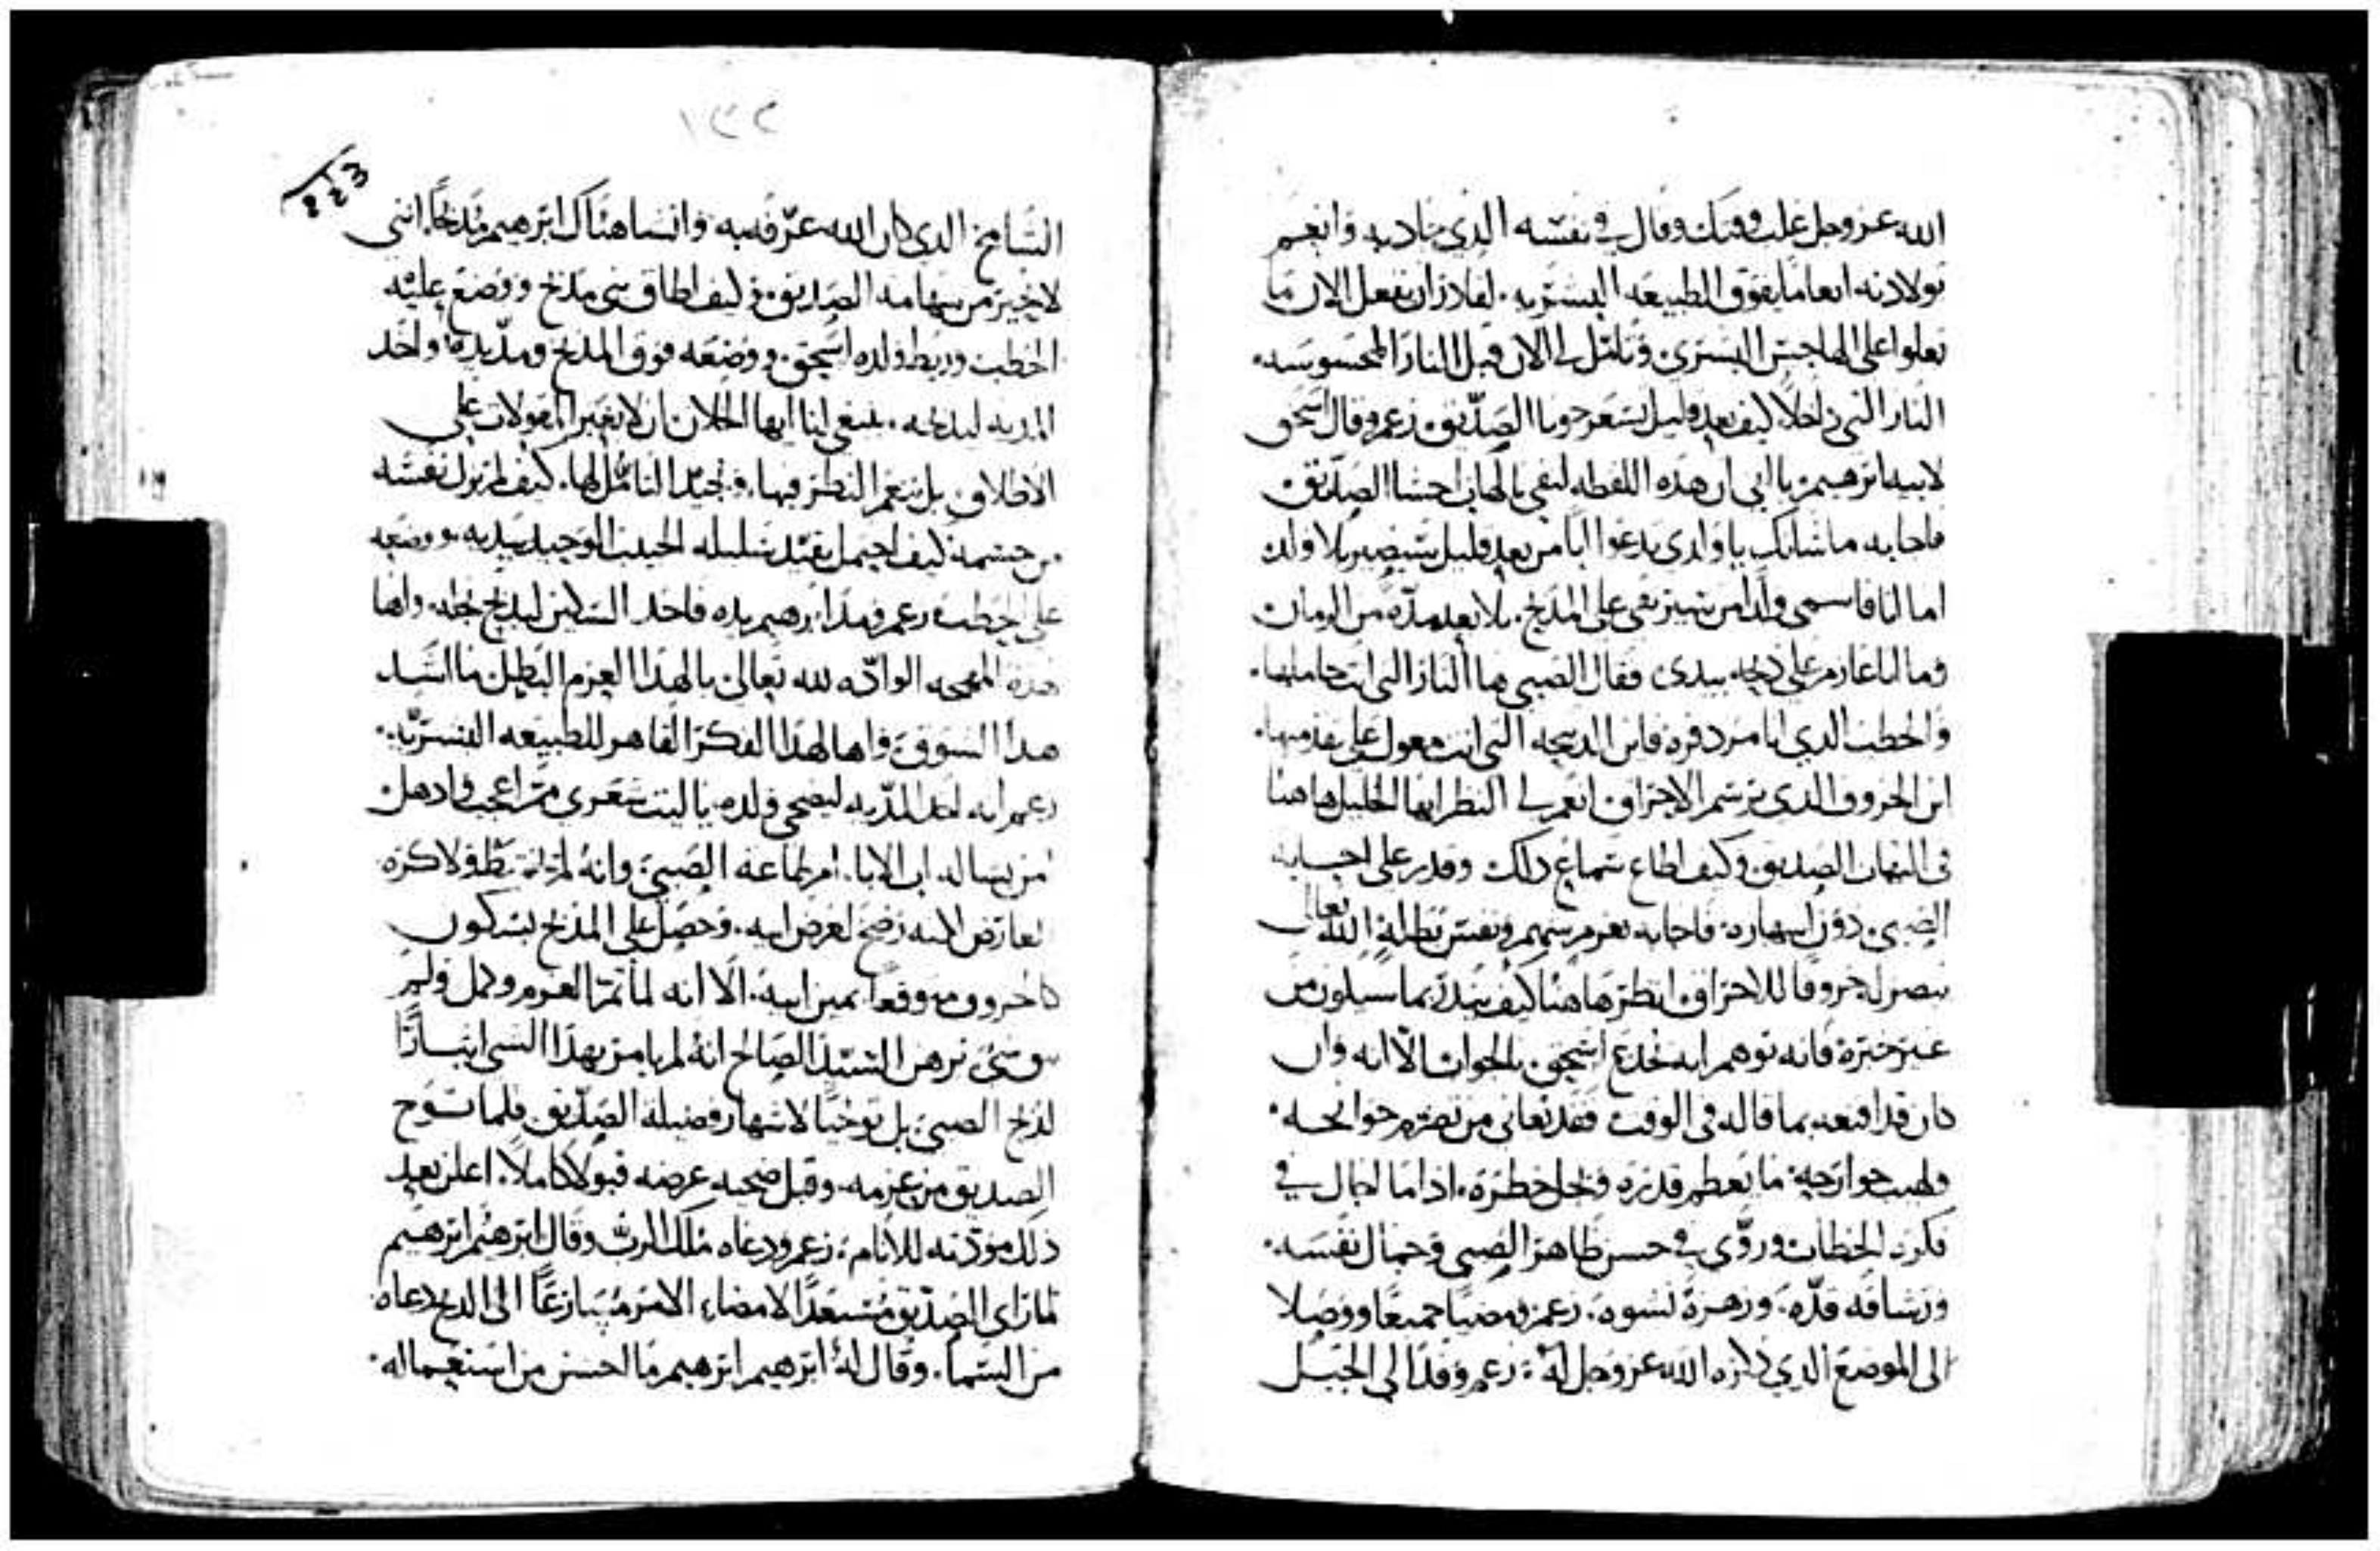 الله عز وجل غلب وفتك وقال في نفسه الذي جاد به وانعم
بولادته انعاما يفوق الطبيعه البشريه. لقادر ان يفعل الان ما
يعلوا على الهاجس البشري وتامل لي الان قبل النار المحسوسه.
النار التي داخلا كيف بعد قليل يسعر جوفا الصديق. زعم وقال اسحق
لابيه ابرهيم يا ابي ان هذه اللفظه لتفي بالهاب احشا الصديق
فاجابه ما شانك يا ولدي يدعوا ابا من بعد قليل سيصير بلا ولد
اما انا فاسمي ولدا من سيرتقى على المذبح. بلا بعد مدة من الزمان
وما انا عازم على ذبحه بيدى فقال الصبي ها النار التي انت حاملها.
والحطب الذي انا مزدفره فاين الذبيحه التي انت معول على تقدمتها.
اين الخروف الذي برسم الاحتراق انعم لي النظر ايها الخليل ها هنا
في الصديق وكيف اطاع سماع ذلك وقدر على اجابة
الصبي دون انبهاره. فاجابه بعزم شهم ونفس بطله الله تعالى
سيصر له خروفا للاحتراق انظر ها هنا كيف ينذر بما سيكون من
غير خبرة فانه توهم انه خدع اسحق بالجواب الا انه وان
كان قد اقنعه بما قاله في الوقت فقد تعانى من تضرم جوانحه.
ولهيب جوارحه ما يعظم قدره ويجل خطره. اذا ما اجال في
فكره الخطاب وروى في حسن ظاهر الصبي وجمال نفسه.
ورشاقه قده. وزهرة نشوه. زعم ومضيا جميعا ووصلا
الى الموضع الذي ذكره الله عز وجل له. زعم وفدا الى الجبل
١٣٢
٤٤٣
الشامخ الذي كان الله عرفه به وانشا هناك ابرهيم مذبحا. انني
لاتحير من شهامه الصديق. كيف اطاق بني مذبح ووضع عليه
الحطب وربط ولده اسحق. ووضعه فوق المذبح ومد يده واخذ
المديه ليذبحه. ينبغي لنا ايها الخلان ان لا نعبر المقولات على
الاطلاق بل ننعم النظر فيها. ونجيد التامل لها. كيف لم تزل نفسه
من جسمه كيف احتمل تقييد سليله الحبيب الوحيد بيديه. ووضعه
على الحطب. زعم ومد ابرهيم يده فاخذ السكين ليذبح نجله. واها
هذه المهجه الوادّه لله تعالى يا لهذا العزم البطيل ما اشد
هذا الشوق. واها لهذا الفكر القاهر للطبيعه البشريه.
زعم انه اخذ المديه ليضحي ولده. يا ليت شعري مم اعجب واذهل
امن بساله اب الابا. ام لطاعه الصبي وانه لم قط ولا كره
لعارض لكنه رضخ لغرض ابيه. وحصل على المذبح بسكون
كاخروف موقعا يمين ابيه. الا انه لما تم العزم وكمل ولم
يبق شي برهن السيد الصالح انه لم يامر بهذا الشي ايثارا
لذبح الصبي. بل توخيا لاشهار فضيلة الصديق فلما توح
الصديق من عزمه. وقبل ضحيه غرضه قبولا كاملا. اعلن بعد
ذلك مودته للانام. زعم ودعاه ملك الرب وقال ابرهيم ابرهيم
لما راى الصديق مستعدا لامضاء الامر متسارعا الى الذبح دعاه
من السما. وقال له ابرهيم ابرهيم ما احسن من استعماله.